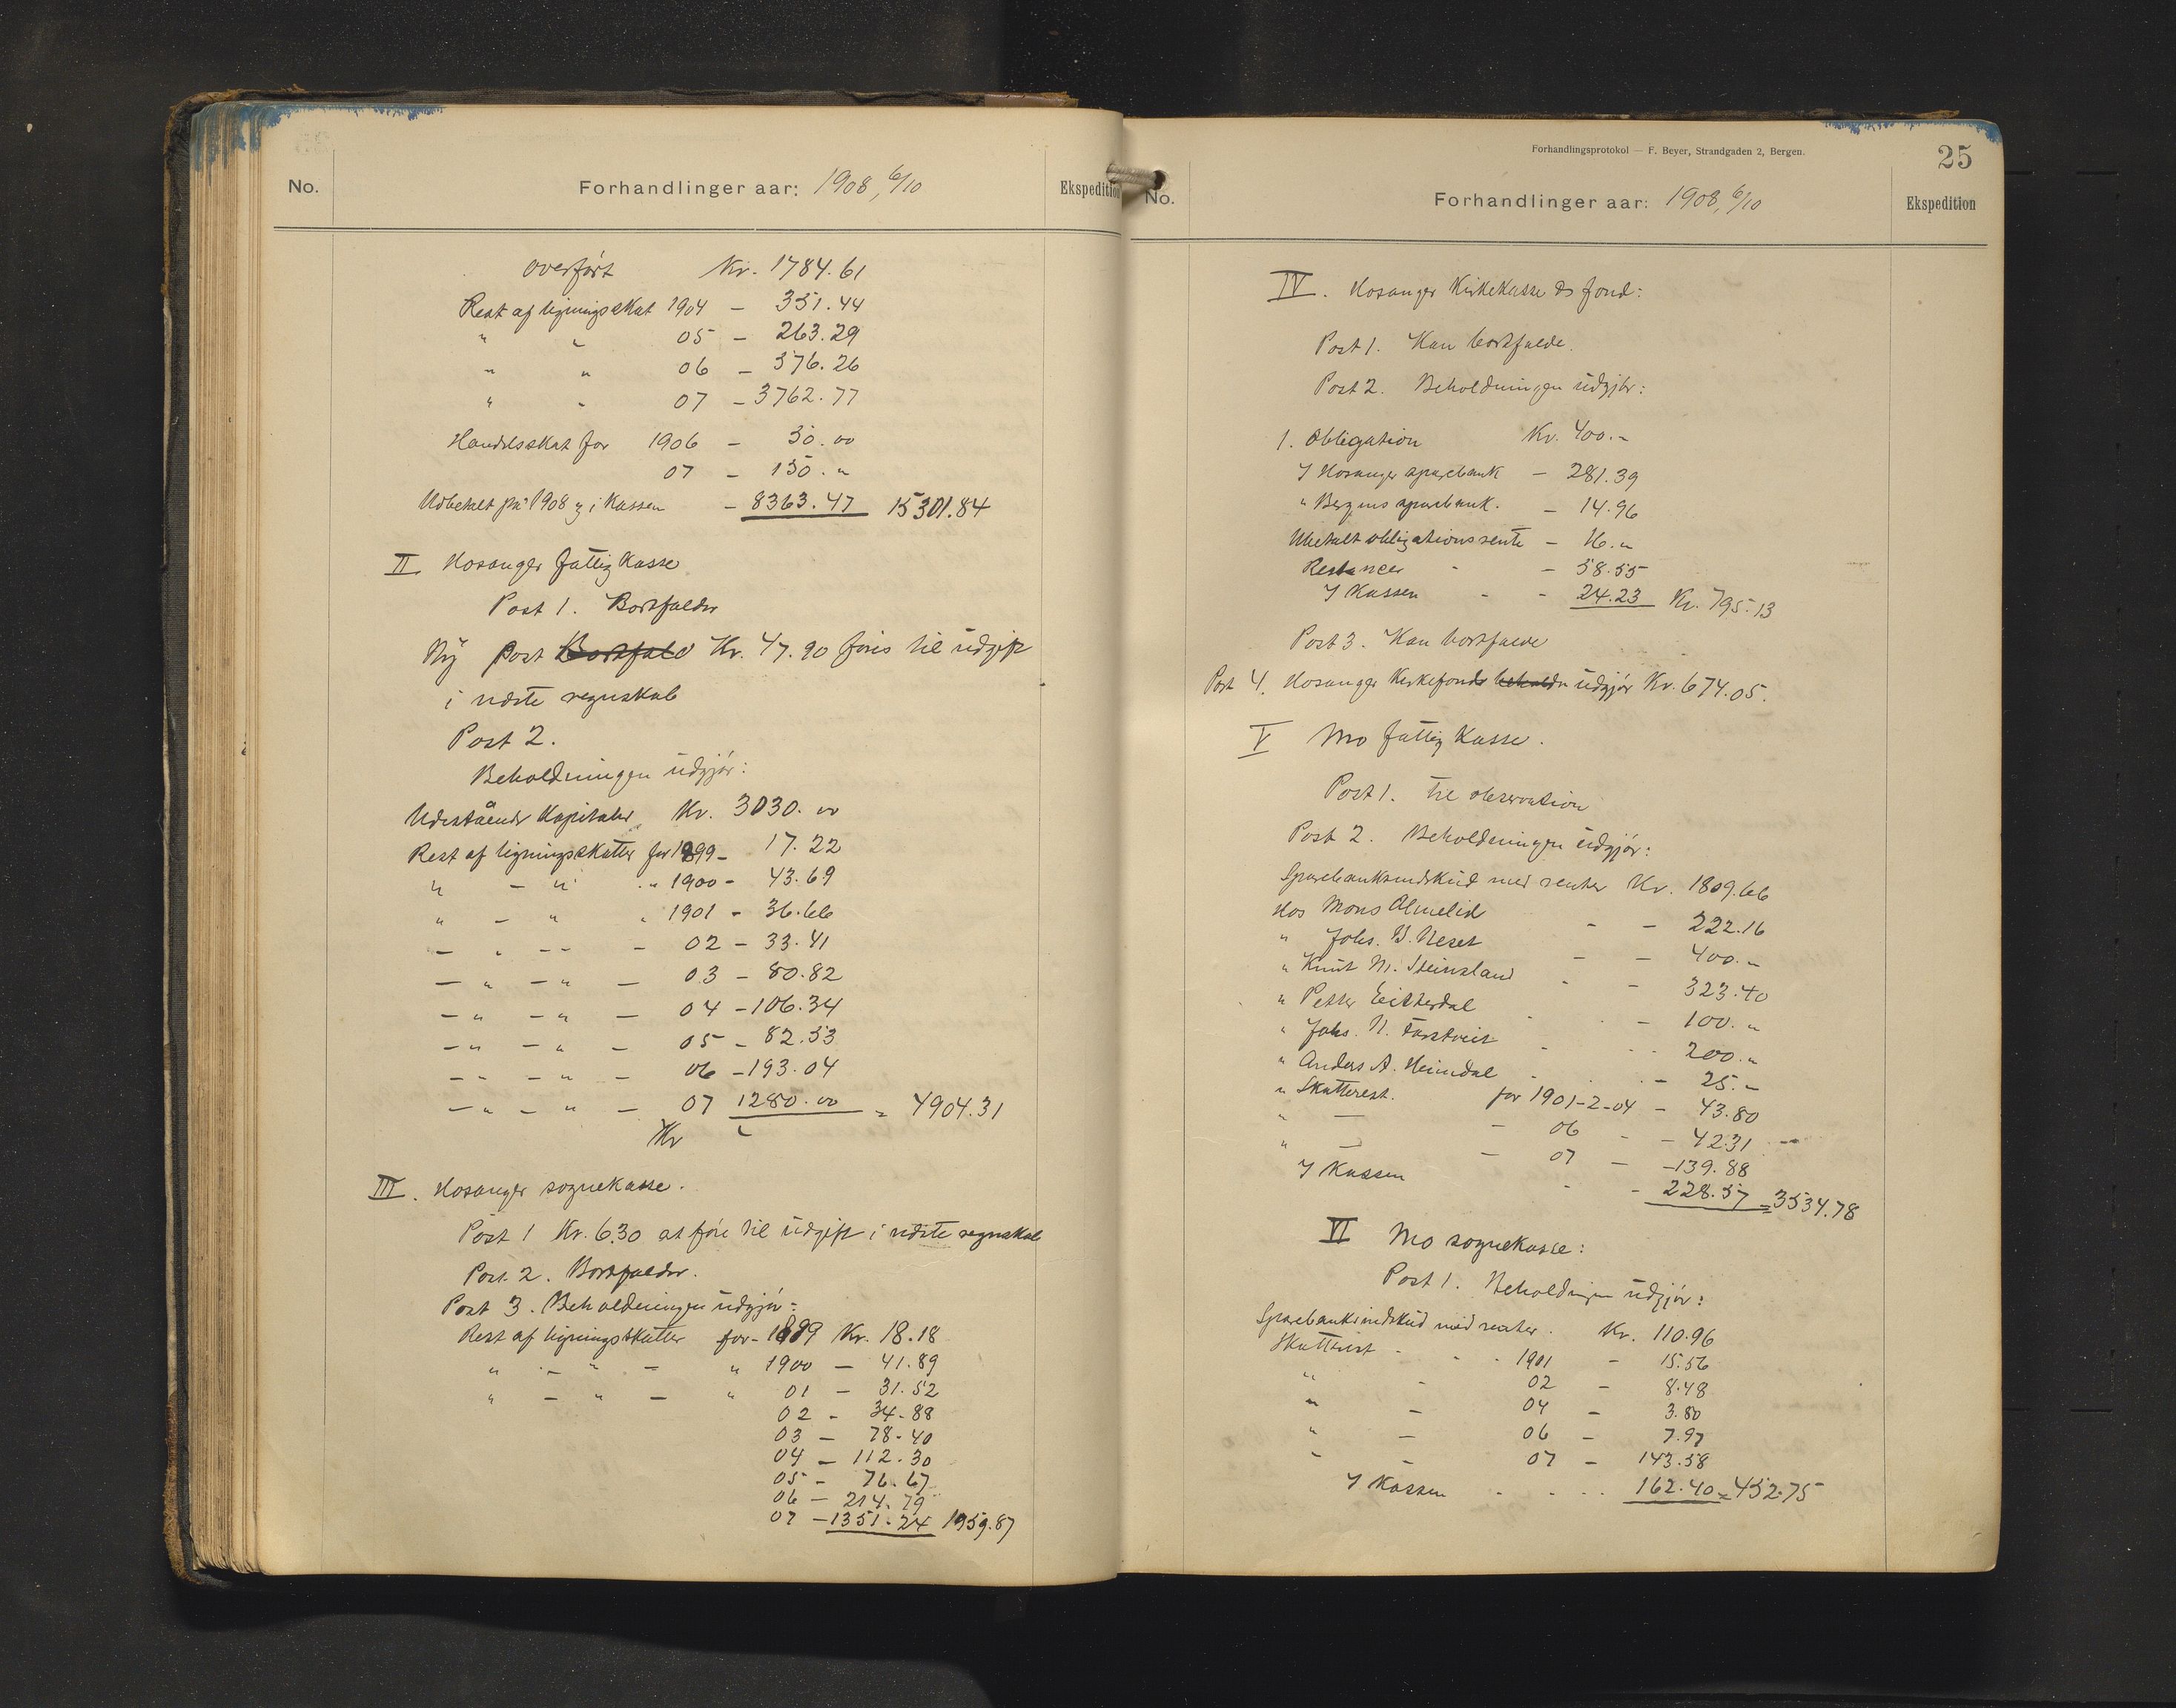 No.
Forhandlinger aar: 1908, 6/10
Ekspedition
overført Kr. 1784.61
Rest af ligningsskat 1904 - 351.44
" " 05 - 263.29
" " 06 - 576.26
" " 07 - 3762.77
Handelsskat for 1906 - 50.00
07 - 150. "
Udbetalt på 1908 & i Kassen - 8363.47 15301.84
II Hosanger fattigkasse
Post 1. Bortfalder
Ny post Bortfald Kr. 47.90 føres til udgift
i næste regnskab
Post 2.
Beholdningen udgjør:
Udestående Kapitaler Kr. 3030.00
Rest af ligningsskatter for 1899 - 17.22
" - " " 1900 - 43.69
" - " " 1901 - 36.66
- " - - - 02 - 33.41
- " - " - 03 - 80.82
- " - " - 04 - 106.34
- " - " - 05 - 82.53
- - - " - 06 - 193.04
- " - " - 07 1280.00 = 4904.31
Kr
III. Hosanger sognekasse.
Post 1 Kr. 6.30 at føre til udgift i næste regnskab
Post 2. Bortfalder.
Post 3. Beholdningen udgjør:
Rest af ligningsskatter for - 1899 Kr. 18.18
" - " - " 1900 - 41.89
" - " - " 01 - 31.52
02 - 34.88
03 - 78.40
04 - 112.30
05 - 76.67
06 - 214.79
07 - 1351.24 1959.87
Forhandlingsprotokol — F. Beyer, Strandgaden 2, Bergen.
25
No.
Forhandlinger aar: 1908, 6/10
Ekspedition
IV. Hosanger Kirkekasse & fond:
Post 1. Kan bortfalde.
Post 2. Beholdningen udgjør:
1. Obligation Kr. 400.-
I Hosanger sparebank - 281.39
" Bergens sparebank. - 14.96
Ubetalt obligationsrente - 16. "
Restancer - - 58.55
I Kassen - - 24.23 Kr. 795.13
Post 3. Kan bortfalde
Post 4. Hosanger Kirkefonds udgjør Kr. 674.05.
V Mo fattigkasse.
Post 1. Til observation
Post 2. Beholdningen udgjør:
Sparebanksindskud med renter Kr. 1809.66
Hos Mons Olmelid - - 222.16
" Johs. B. Neset - - 400.-
" Knut M. Steinsland - - 323.40
" Petter Eitterdal - - 100. "
" Johs. N. - - 200. "
" Anders A. Heimdal - - 25.-
" Skatterest. for 1901-2-04 - 43.80
" - - 06 - - 42.31
" - - 07 - - 139.88
I Kassen - - 228.57 = 3534.78
VI Mo sognekasse:
Post 1. Beholdningen udgjør:
Sparebanksindskud med renter. Kr. 110.96
Skatterest - - - 1901 - 15.56
" - 02 - 8.48
" - 04 - 3.80
" - 06 - 7.97
" - 07 - 143.58
I Kassen - - - - 162.40 = 452.75